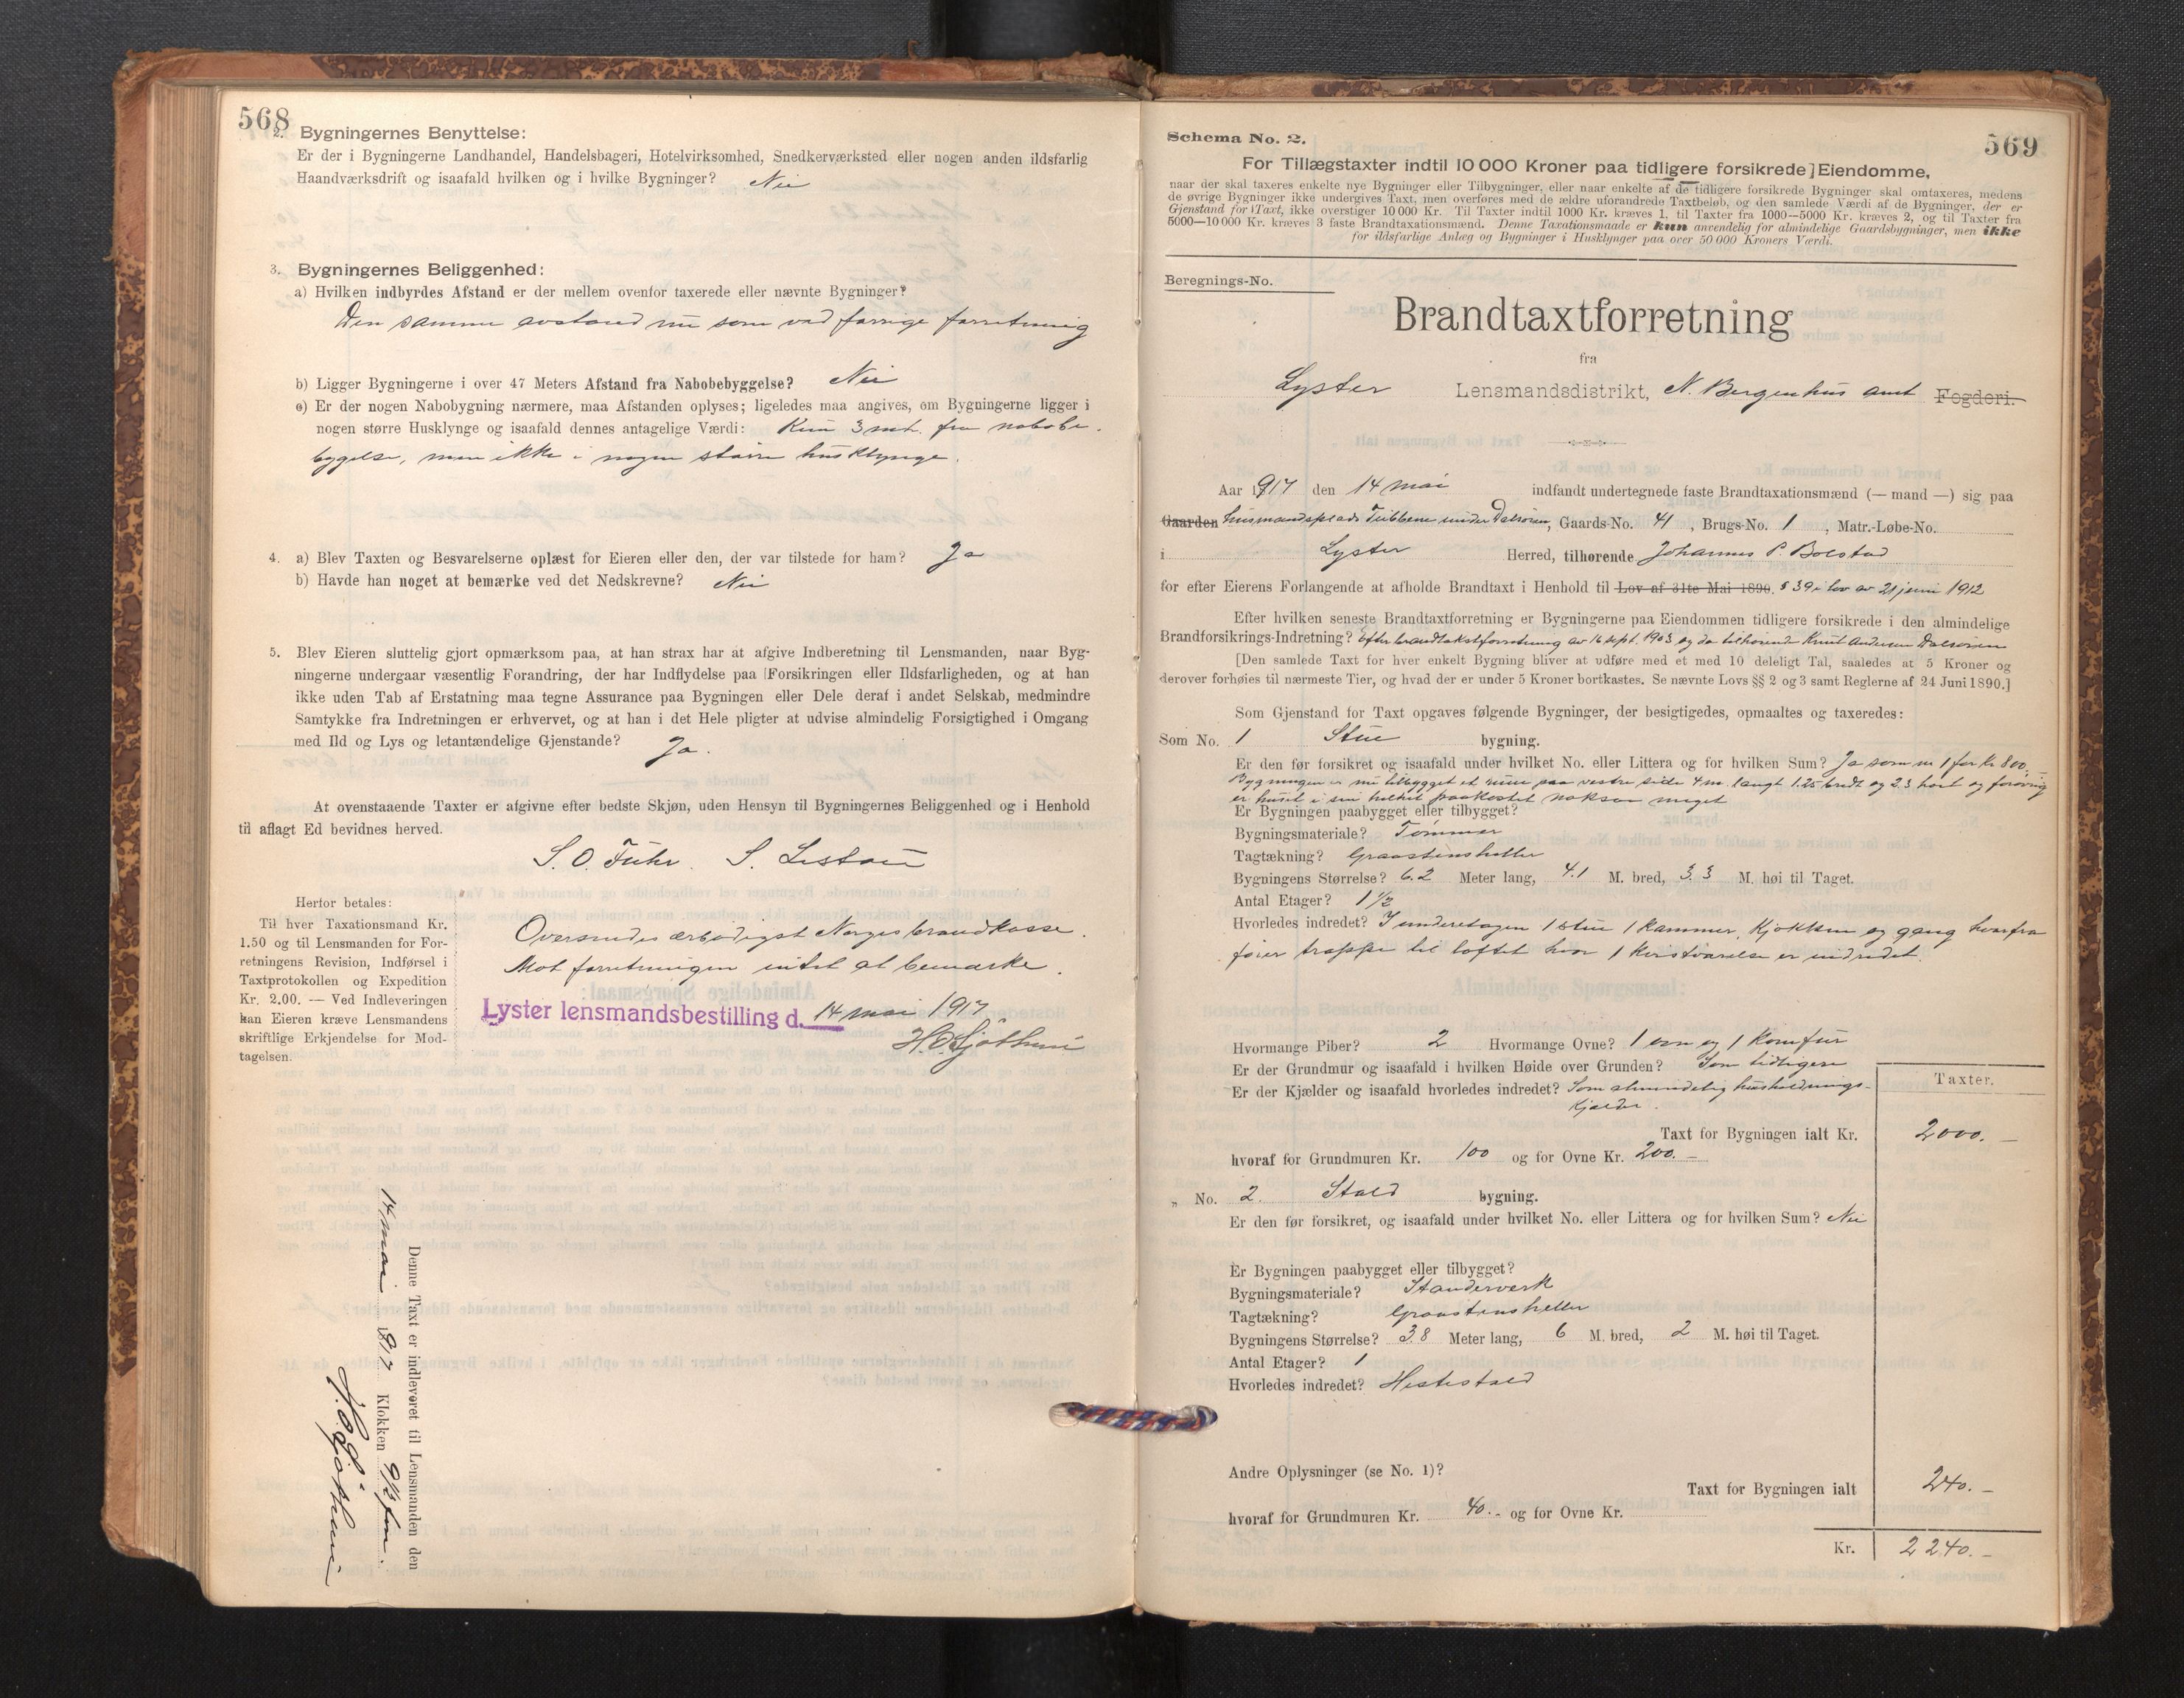 568
2. Bygningernes Benyttelse:
Er der i Bygningerne Landhandel, Handelsbageri, Hotelvirksomhed, Snedkerværksted eller nogen anden ildsfarlig
Haandværksdrift og isaafald hvilken og i hvilke Bygninger? Nei
3. Bygningernes Beliggenhed:
a) Hvilken indbyrdes Afstand er der mellem ovenfor taxerede eller nævnte Bygninger?
Den samme avstand nu som ved forrige forretning
b) Ligger Bygningerne i over 47 Meters Afstand fra Nabobebyggelse? Nei
c) Er der nogen Nabobygning nærmere, maa Afstanden oplyses; ligeledes maa angives, om Bygningerne ligger i
nogen større Husklynge og isaafald dennes antagelige Værdi: Kun 3 mtr. fra nabobe-
bygelse, men ikke i nogen større husklynge.
4. a) Blev Taxten og Besvarelserne oplæst for Eieren eller den, der var tilstede for ham? Ja
b) Havde han noget at bemærke ved det Nedskrevne? Nei
5. Blev Eieren sluttelig gjort opmærksom paa, at han strax har at afgive Indberetning til Lensmanden, naar Byg-
ningerne undergaar væsentlig Forandring, der har Indflydelse paa Forsikringen eller Ildsfarligheden, og at han
ikke uden Tab af Erstatning maa tegne Assurance paa Bygningen eller Dele deraf i andet Selskab, medmindre
Samtykke fra Indretningen er erhvervet, og at han i det Hele pligter at udvise almindelig Forsigtighed i Omgang
med Ild og Lys og letantændelige Gjenstande? Ja.
At ovenstaaende Taxter er afgivne efter bedste Skjøn, uden Hensyn til Bygningernes Beliggenhed og i Henhold
til aflagt Ed bevidnes herved.
S. O. Fuhr. S.
Herfor betales:
Til hver Taxationsmand Kr.
1.50 og til Lensmanden for For-
retningens Revision, Indførsel i
Taxtprotokollen og Expedition
Kr. 2.00. — Ved Indleveringen
kan Eieren kræve Lensmandens
skriftlige Erkjendelse for Mod-
tagelsen.
Oversendes ærbødigst Norges brandkasse.
Mot forretningen intet at bemærke.
Lyster lensmandsbestilling d. 14 mai 1917
Denne Taxt er indleveret til Lensmanden den
14 mai 1917 Klokken 9 1/2 fm.
Schema No. 2.
569
For Tillægstaxter indtil 10 000 Kroner paa tidligere forsikrede Eiendomme,
naar der skal taxeres enkelte nye Bygninger eller Tilbygninger, eller naar enkelte af de tidligere forsikrede Bygninger skal omtaxeres, medens
de øvrige Bygninger ikke undergives Taxt, men overføres med de ældre uforandrede Taxtbeløb, og den samlede Værdi af de Bygninger, der er
Gjenstand for Taxt, ikke overstiger 10 000 Kr. Til Taxter indtil 1000 Kr. kræves 1, til Taxter fra 1000—5000 Kr. kræves 2, og til Taxter fra
5000—10 000 Kr. kræves 3 faste Brandtaxationsmænd. Denne Taxationsmaade er kun anvendelig for almindelige Gaardsbygninger, men ikke
for ildsfarlige Anlæg og Bygninger i Husklynger paa over 50 000 Kroners Værdi.
Beregnings-No.
Brandtaxtforretning
fra
Lyster Lensmandsdistrikt, N. Bergenhus amt Fogderi.
Aar 1917 den 14 mai indfandt undertegnede faste Brandtaxationsmænd (— mand —) sig paa
Gaarden husmandsplads under Dalsøren, Gaards-No. 41, Brugs-No. 1, Matr.-Løbe-No.
i Lyster Herred, tilhørende Johannes P. Bolstad
for efter Eierens Forlangende at afholde Brandtaxt i Henhold til Lov af 31te Mai 1890. § 39 i lov av 21 juni 1912
Efter hvilken seneste Brandtaxtforretning er Bygningerne paa Eiendommen tidligere forsikrede i den almindelige
Brandforsikrings-Indretning? Efter brandtakstforretning av 16 sept. 1903 og da tilhørende Knut Andersen Dalsøren
[Den samlede Taxt for hver enkelt Bygning bliver at udføre med et med 10 deleligt Tal, saaledes at 5 Kroner og
derover forhøies til nærmeste Tier, og hvad der er under 5 Kroner bortkastes. Se nævnte Lovs §§ 2 og 3 samt Reglerne af 24 Juni 1890.]
Som Gjenstand for Taxt opgaves følgende Bygninger, der besigtigedes, opmaaltes og taxeredes:
Som No. 1 Stue bygning.
Er den før forsikret og isaafald under hvilket No. eller Littera og for hvilken Sum? Ja som nr 1 for kr 800.—
Bygningen er nu tilbygget et rum paa vestre side 4 m. langt 1.25 bredt og 2.3 høit og forøvrig
er huset i sin helhet paakostet noksaa meget
Er Bygningen paabygget eller tilbygget?
Bygningsmateriale? Tømmer
Tagtækning? Graastenshelle
Bygningens Størrelse? 6.2 Meter lang, 4.1 M. bred, 3.3 M. høi til Taget.
Antal Etager? 1 1/2
Hvorledes indredet? I underetagen 1 stue 1 kammer, kjøkken og gang hvorfra
fører trappe til loftet hvor 1 kvistværelse er indredet.
Hvormange Piber? 2 Hvormange Ovne? 1 ovn og 1 komfur
Er der Grundmur og isaafald i hvilken Høide over Grunden? Som tidligere
Er der Kjælder og isaafald hvorledes indredet? Som almindelig husholdnings-
kjælder.
Taxter.
Taxt for Bygningen ialt Kr. 2000.—
hvoraf for Grundmuren Kr. 100 og for Ovne Kr. 200.—
„ No. 2. Stald bygning.
Er den før forsikret, og isaafald under hvilket No. eller Littera og for hvilken Sum? Nei
Er Bygningen paabygget eller tilbygget?
Bygningsmateriale? Standerverk
Tagtækning? Graastenshelle
Bygningens Størrelse? 3.8 Meter lang, 6 M. bred, 2 M. høi til Taget.
Antal Etager? 1
Hvorledes indredet? Hestestald
Andre Oplysninger (se No. 1)?
Taxt for Bygningen ialt 240.—
hvoraf for Grundmuren Kr. 40.- og for Ovne Kr.
Kr. 2240.—